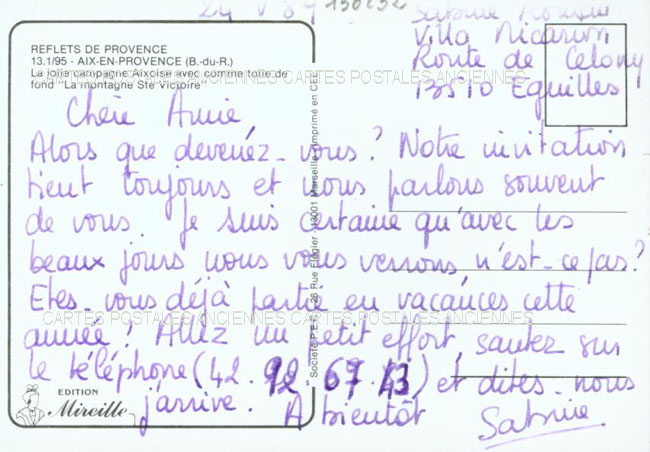 24 V 89 130232
Sabine
Villa
Route de Celony
13510 Eguilles
REFLETS DE PROVENCE
13.1/95 - AIX-EN-PROVENCE (B.-du-R.)
La jolie campagne Aixoise avec comme toile de
fond "La montagne Ste Victoire"
CARTES POSTALES ANCIENNES CARTES POSTALES ANCIENNES
Chère Amie
Alors que devenez-vous? Notre invitation
tient toujours et nous parlons souvent
de vous. Je suis certaine qu'avec les
beaux jours nous vous verrons n'est-ce pas?
Etes-vous déjà partie en vacances cette
année? Allez un petit effort, sautez sur
le téléphone (42.92.67.43) et dites-nous
j'arrive. A bientôt Sabine
CARTES POSTALES ANCIENNES CARTES POSTALES ANCIENNES
Société P.E.C. 26 Rue Flégier - 13001 Marseille Imprimé en CEE
EDITION
Mireille